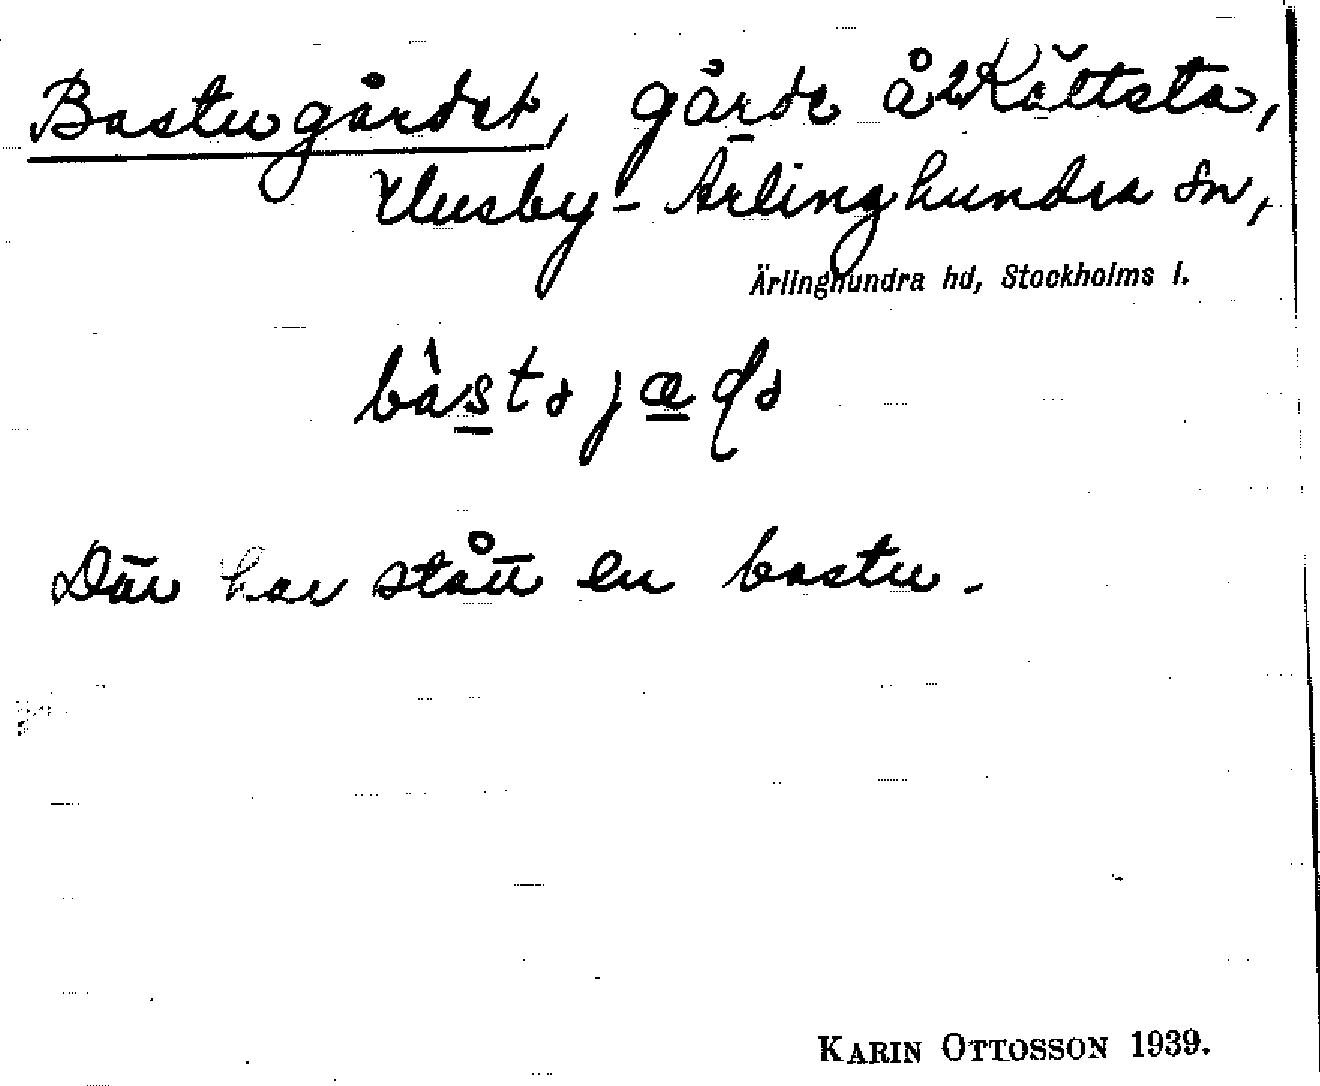 Bastugärdet, gärde å 2 Källsta,
Husby-Ärlinghundra sn,
Ärlinghundra hd, Stockholms l.
Där har stått en bastu.
KARIN OTTOSSON 1939.